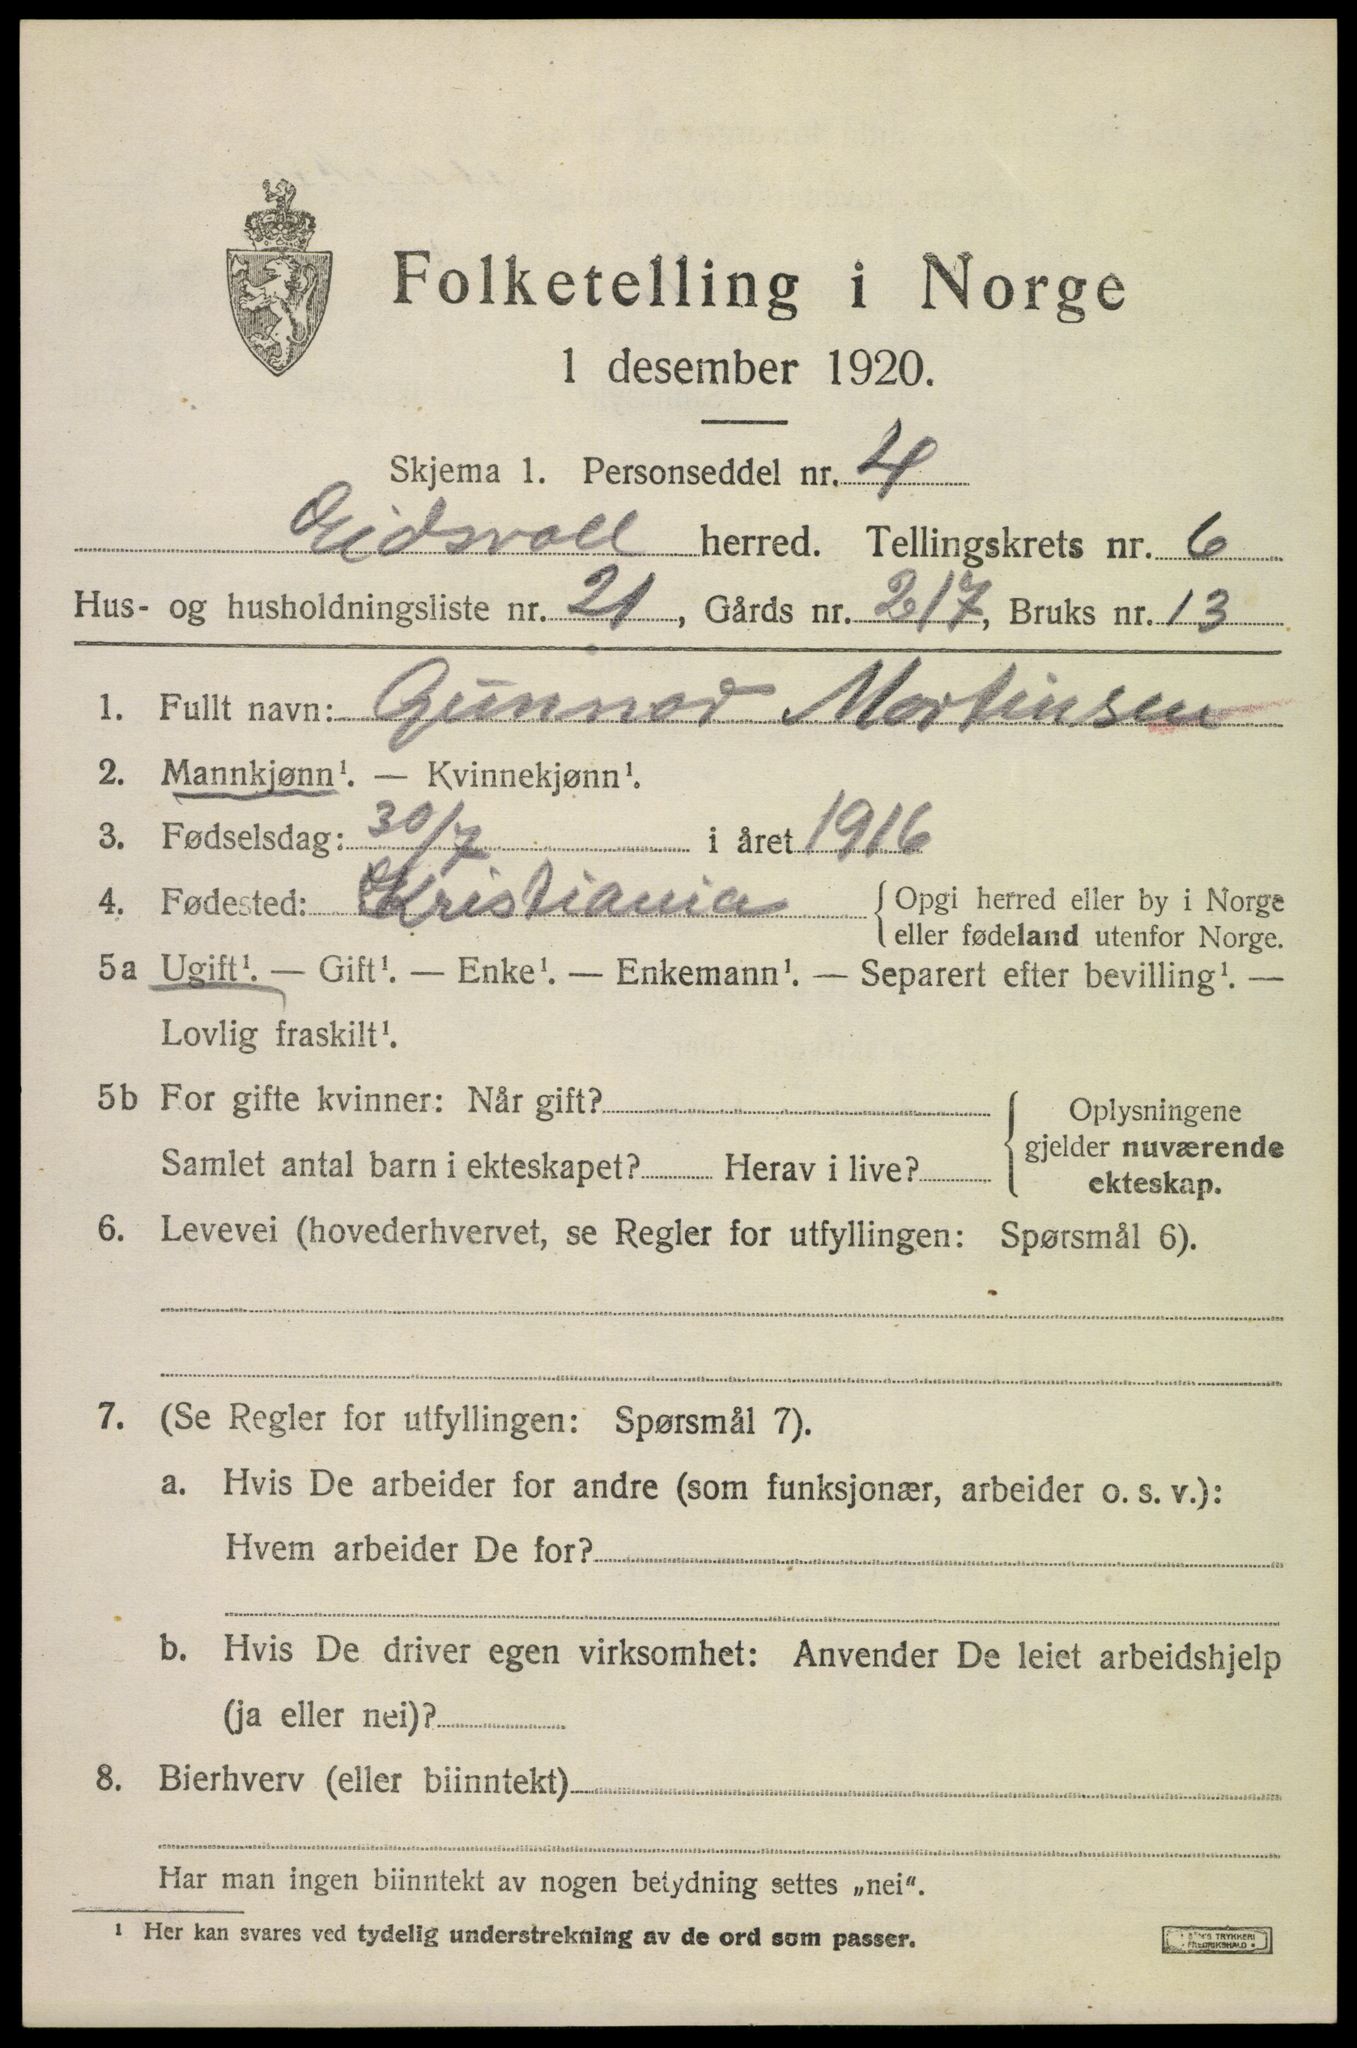 Folketelling i Norge
1 desember 1920.
Skjema 1. Personseddel nr. 4
Eidsvoll herred. Tellingskrets nr. 6
Hus- og husholdningsliste nr. 21, Gårds nr. 217, Bruks nr. 13
1. Fullt navn: Gunnar Martinsen
2. Mannkjønn¹. — Kvinnekjønn¹.
3. Fødselsdag: 30/7 i året 1916
4. Fødested: Kristiania {Opgi herred eller by i Norge
eller fødeland utenfor Norge.
5a Ugift¹. — Gift¹. — Enke¹. — Enkemann¹. — Separert efter bevilling¹. —
Lovlig fraskilt¹.
5b For gifte kvinner: Når gift?
Samlet antal barn i ekteskapet? Herav i live?
Oplysningene
gjelder nuværende
ekteskap.
6. Levevei (hovederhvervet, se Regler for utfyllingen: Spørsmål 6).
7. (Se Regler for utfyllingen: Spørsmål 7).
a. Hvis De arbeider for andre (som funksjonær, arbeider o. s. v.):
Hvem arbeider De for?
b. Hvis De driver egen virksomhet: Anvender De leiet arbeidshjelp
(ja eller nei)?
8. Bierhverv (eller biinntekt)
Har man ingen biinntekt av nogen betydning settes „nei“.
¹ Her kan svares ved tydelig understrekning av de ord som passer.
TRYKKERI
FREDRIKSHALD